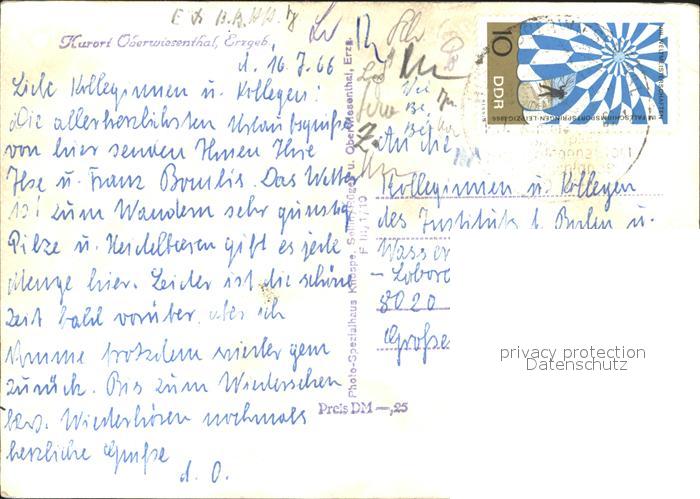 Kurort Oberwiesenthal, Erzgeb.
d. 16.7.66
Liebe Kolleginnen u. Kollegen!
Die allerherzlichsten Urlaubsgrüße
von hier senden Ihnen Ihre
Ilse u. Franz Das Wetter
ist zum Wandern sehr günstig
Pilze u. Heidelbeeren gibt es jede
Menge hier. Leider ist die schöne
Zeit bald vorüber, aber ich
komme trotzdem wieder gern
zurück. Bis zum Wiedersehen
bzw. Wiederhören nochmals
herzliche Grüße
d. O.
Photo-Spezialhaus Kneppe, Oberwiesenthal, Erzg.
Preis DM —,25
10
DDR
VIII. WELTMEISTERSCHAFTEN
IM FALLSCHIRMSPORTSPRINGEN · LEIPZIG 1966
An die
Kolleginnen u. Kollegen
des Instituts f. Boden u.
Wasser
- Labor
8020
Große
privacy protection
Datenschutz